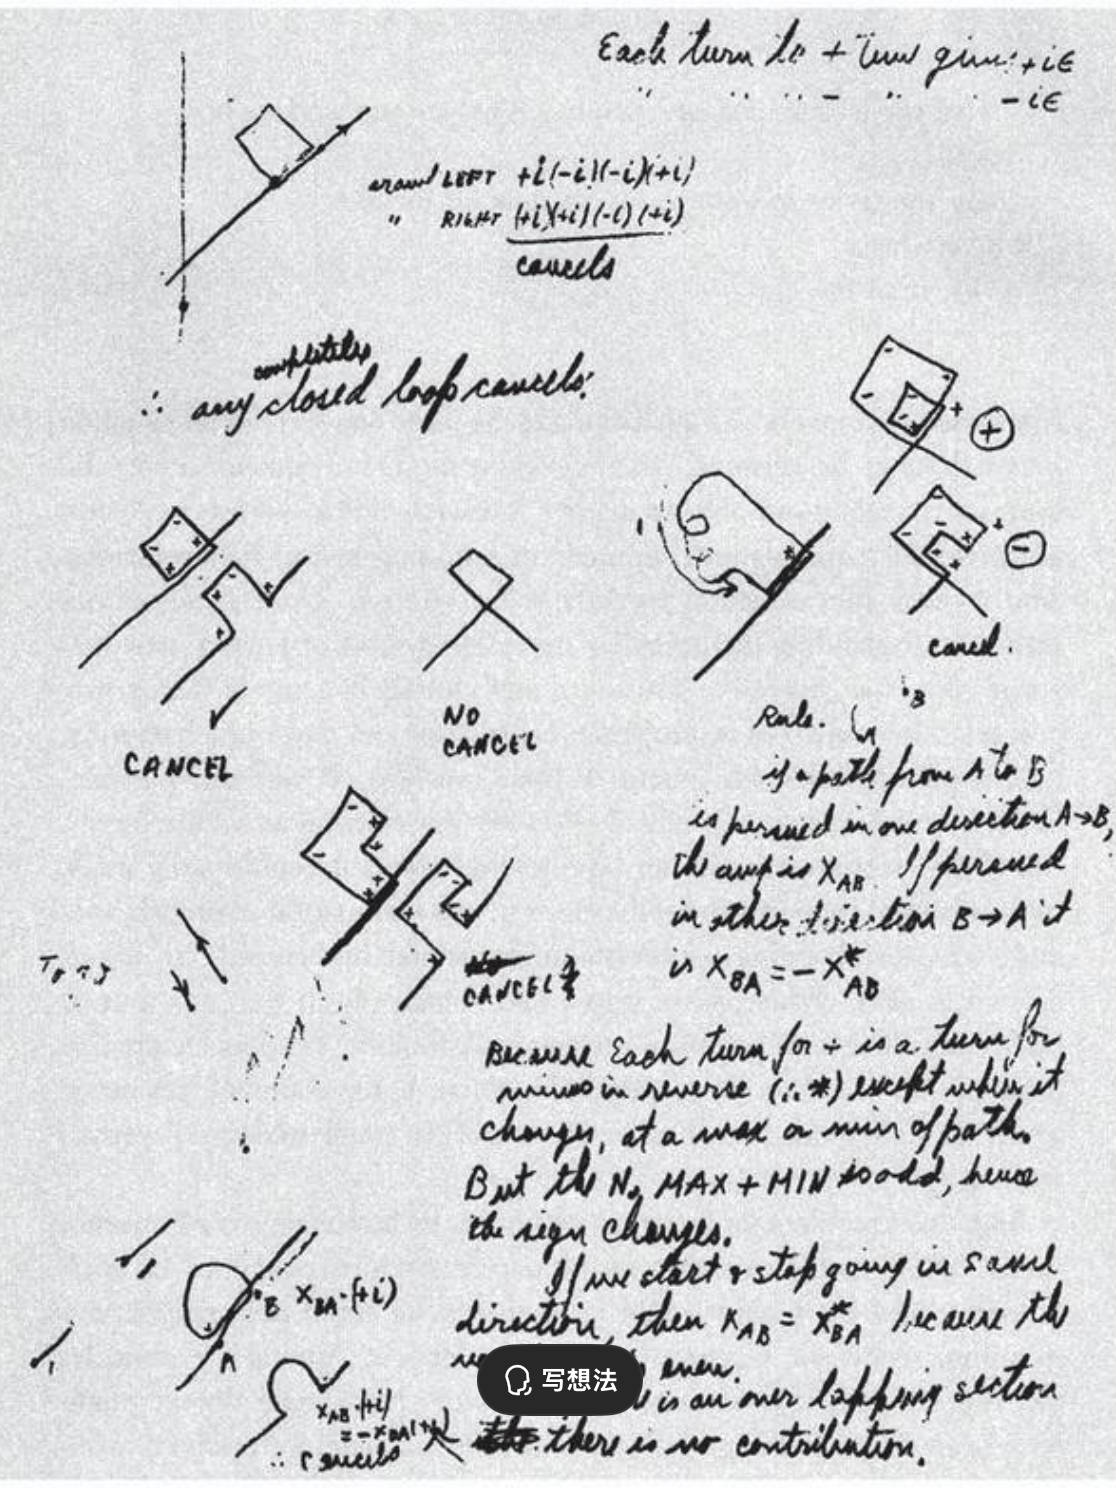 Each turn to + time gives +iϵ
" " " - " " -iϵ
around LEFT +i(-i)(-i)(+i)
" RIGHT (+i)(+i)(-i)(+i)
cancels
completely
∴ any closed loop cancels.
+ ⊕
+ ⊖
cancel.
CANCEL
NO
CANCEL
B
Rule.
if a path from A to B
is persued in one direction A→B,
the amp is X_AB. If persued
in other direction B→A it
is X_BA = -X*_AB
CANCEL
Because Each turn for + is a turn for
minus in reverse (∴ *) except when it
changes, at a max or min of path.
But the No MAX + MIN is odd, hence
the sign changes.
If we start & stop going in same
direction, then X_AB = X*_BA because the
even.
is an over lapping section
there is no contribution.
B X_BA·(+i)
A
X_AB·(+i)
= -X_BA(+i)
∴ cancels
写想法